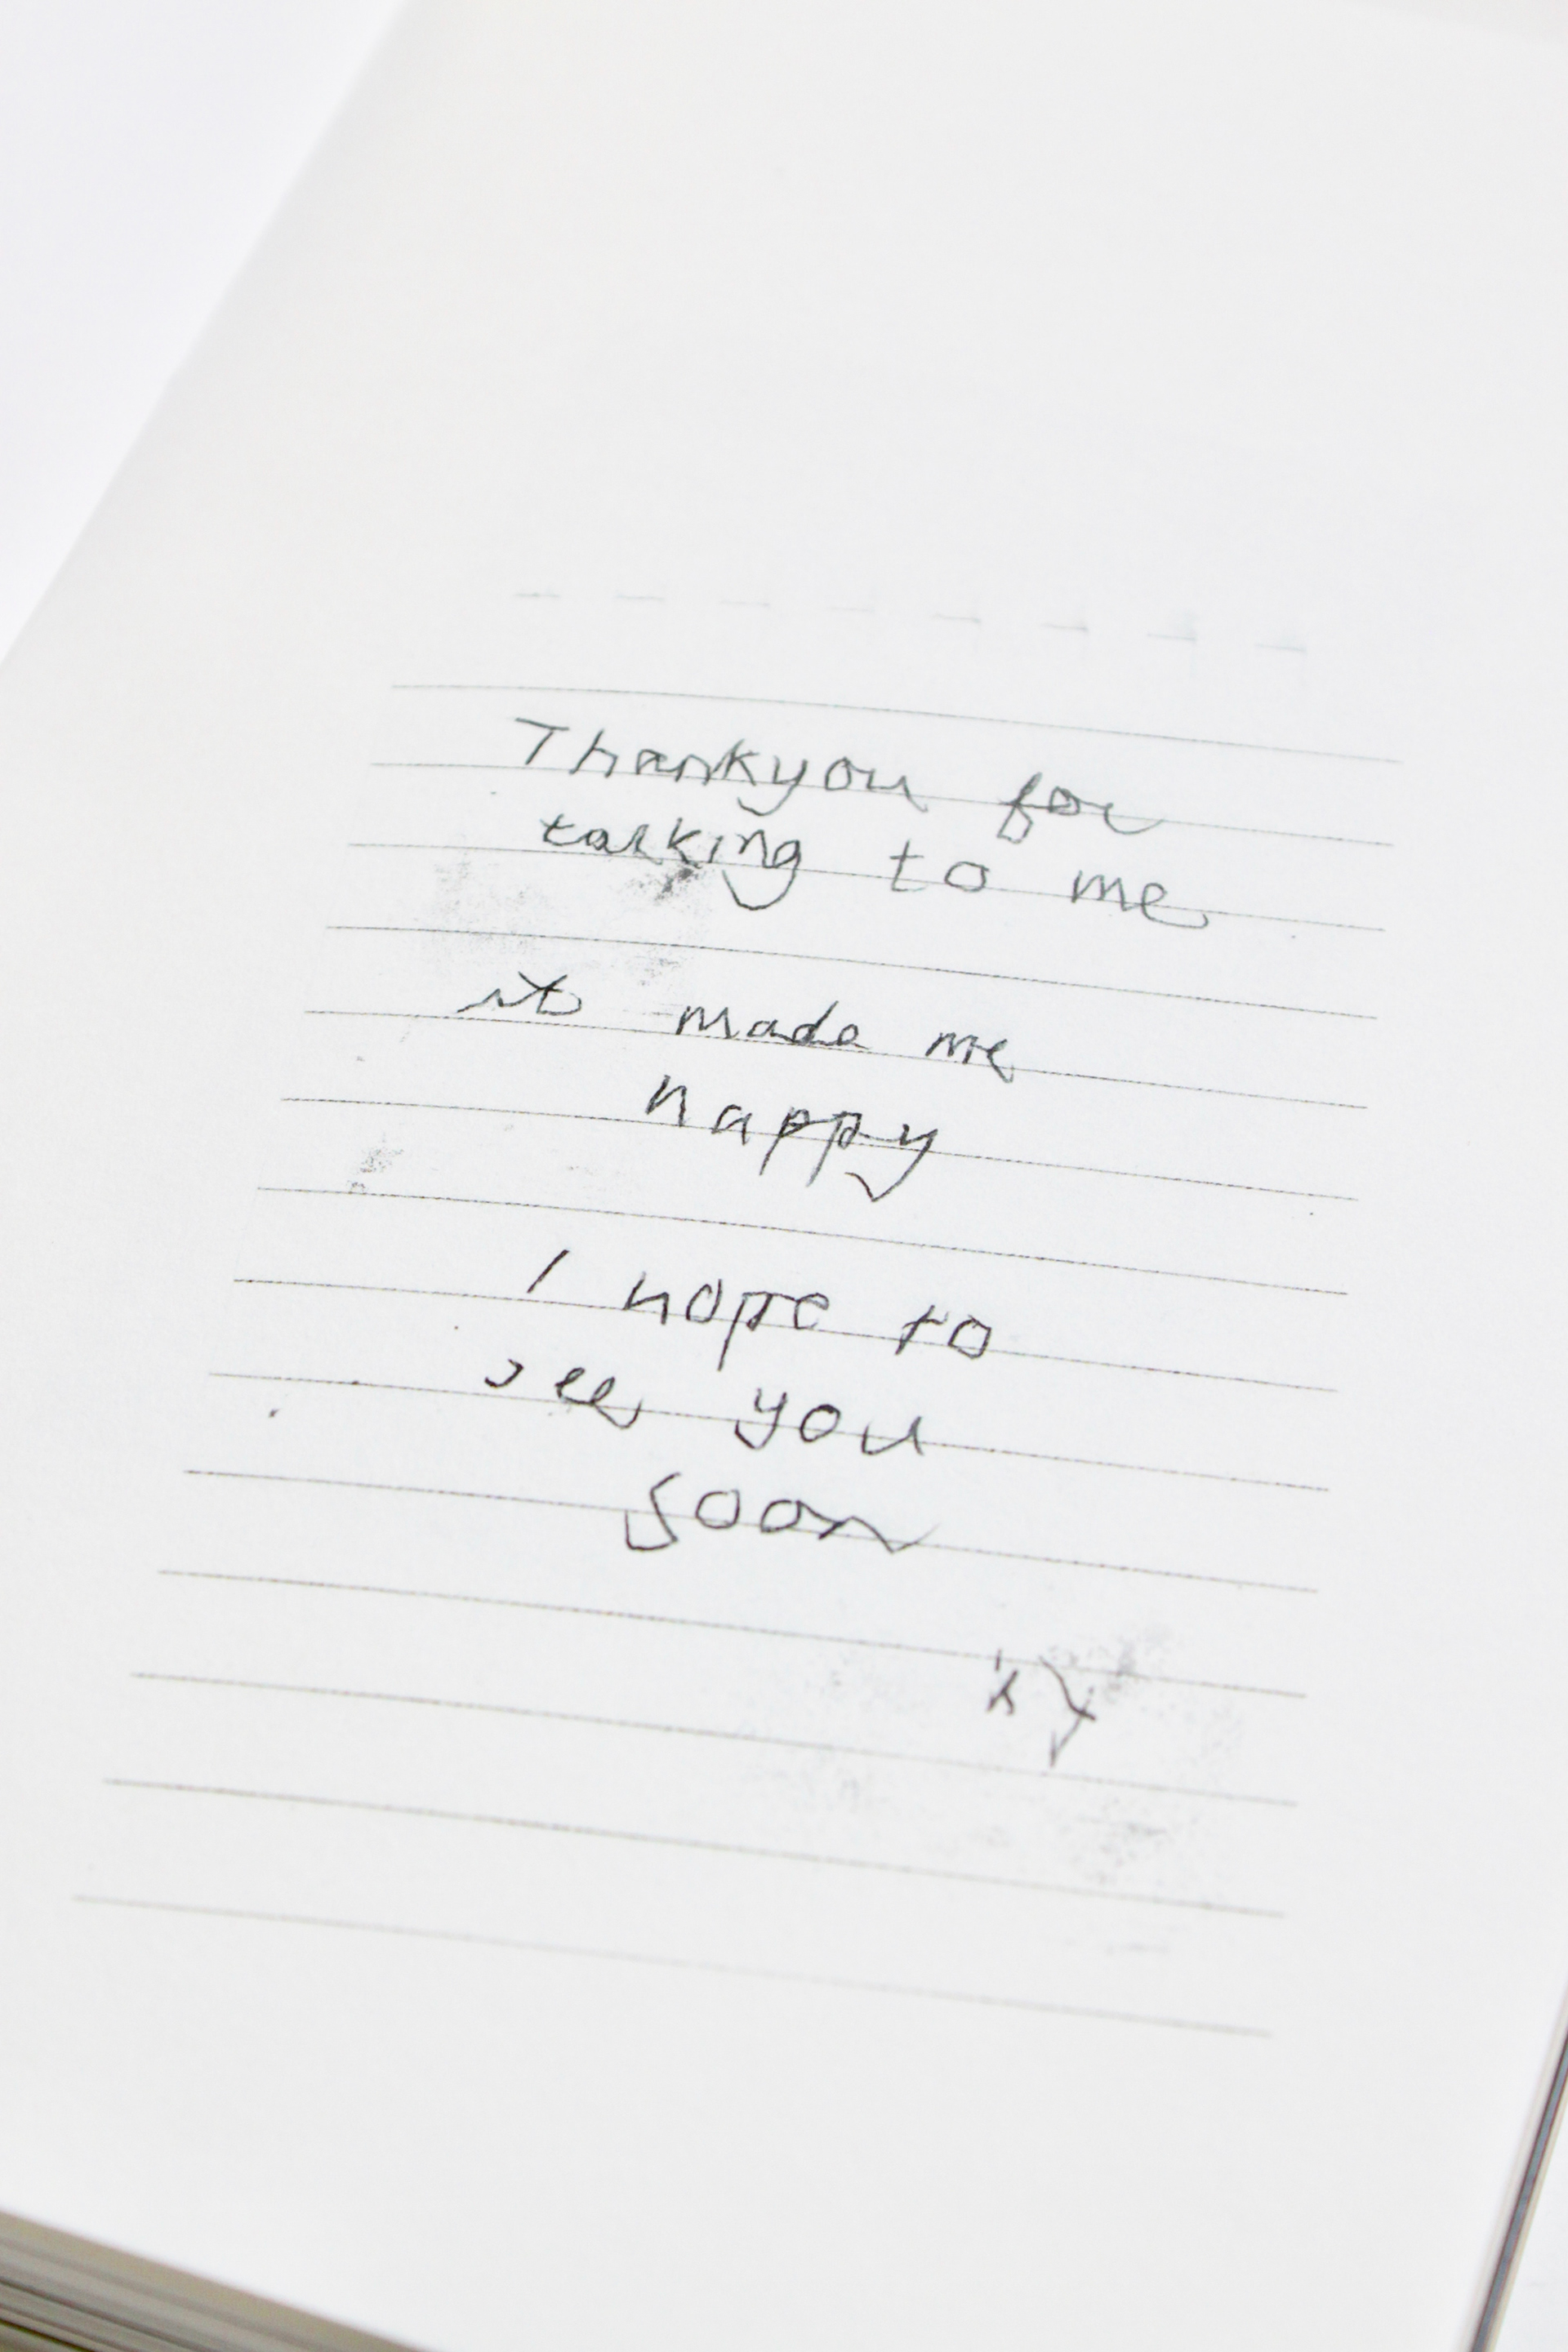 Thankyou for
talking to me
it made me
happy
I hope to
see you
soon